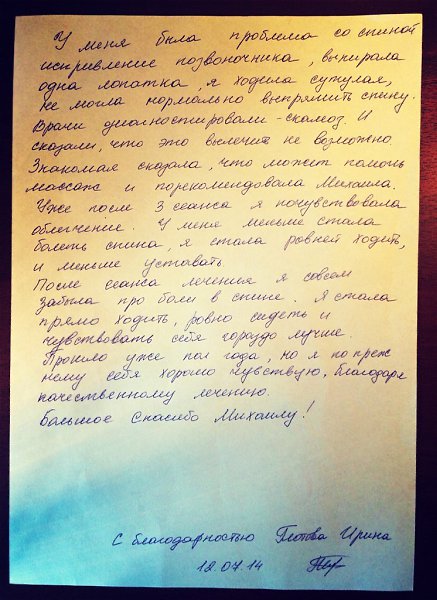 У меня была проблема со спиной
искривление позвоночника, выпирала
одна лопатка, я ходила сутулая,
не могла нормально выпрямить спину.
Врачи диагностировали - скалиоз. И
сказали, что это вылечить не возможно.
Знакомая сказала, что может помочь
массаж и порекомендовала Михаила.
Уже после 3 сеанса я почувствовала
облегчение. У меня меньше стала
болеть спина, я стала ровней ходить,
и меньше уставать
После сеанса лечения я совсем
забыла про боли в спине. Я стала
прямо ходить, ровно сидеть и
чувствовать себя гораздо лучше
Прошло уже пол года, но я по преж
нему себя хорошо чувствую, благодаря
качественному лечению.
Большое Спасибо Михаилу!
С благодарностью Глотова Ирина
12.07.14